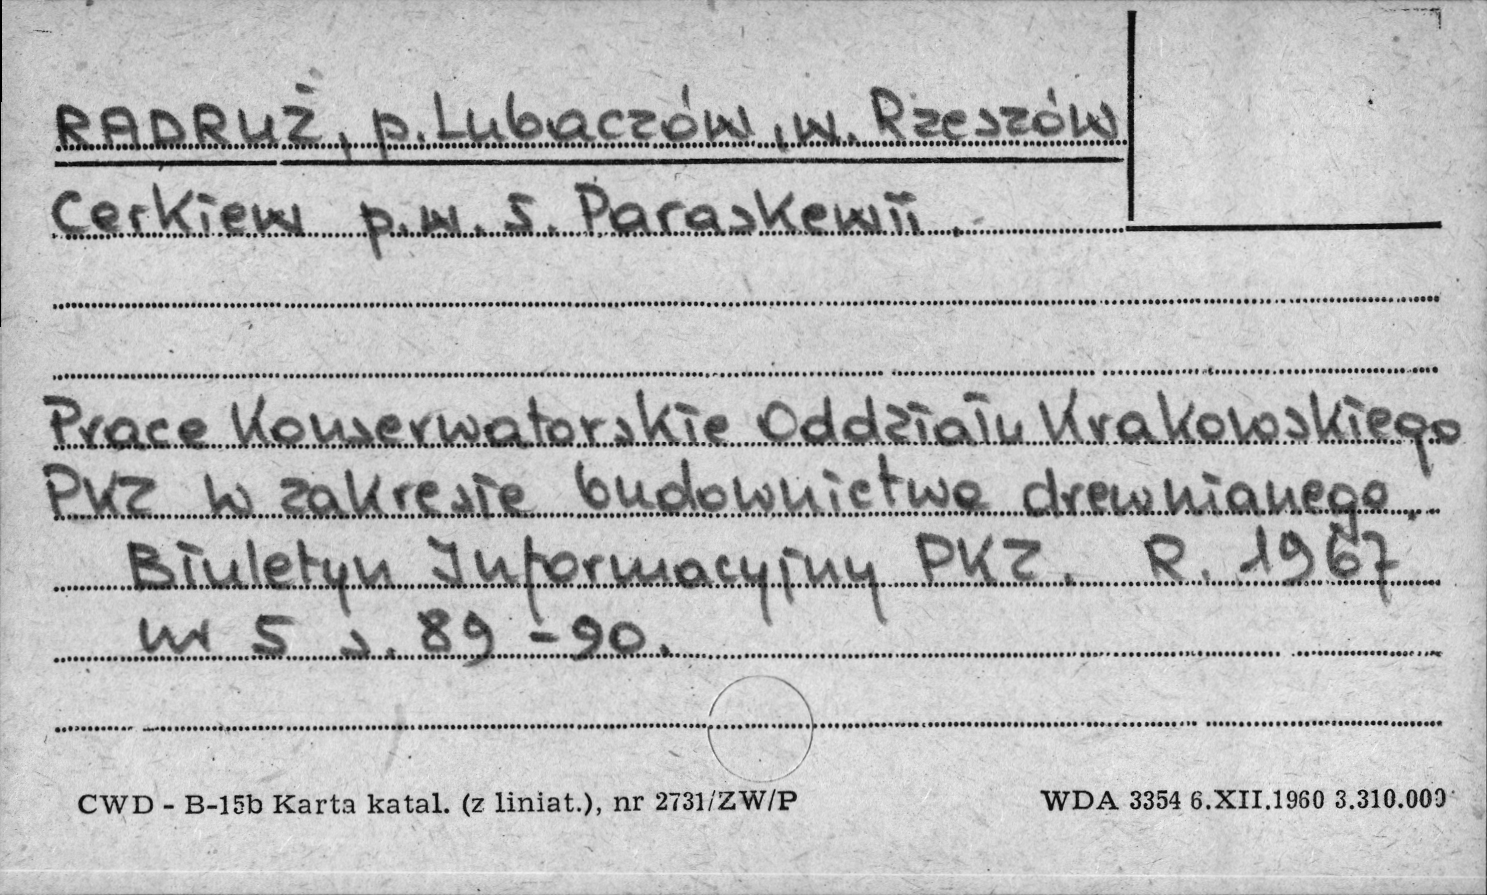 RADRUŻ, p. Lubaczów, w. Rzeszów
Cerkiew p.w. S. Paraskewii.
Prace Konserwatorskie Oddziału Krakowskiego
PKZ w zakresie budownictwa drewnianego.
Biuletyn Informacyjny PKZ. R. 1967
nr 5 s. 89-90.
CWD - B-15b Karta katal. (z liniat.), nr 2731/ZW/P
WDA 3354 6.XII.1960 3.310.000